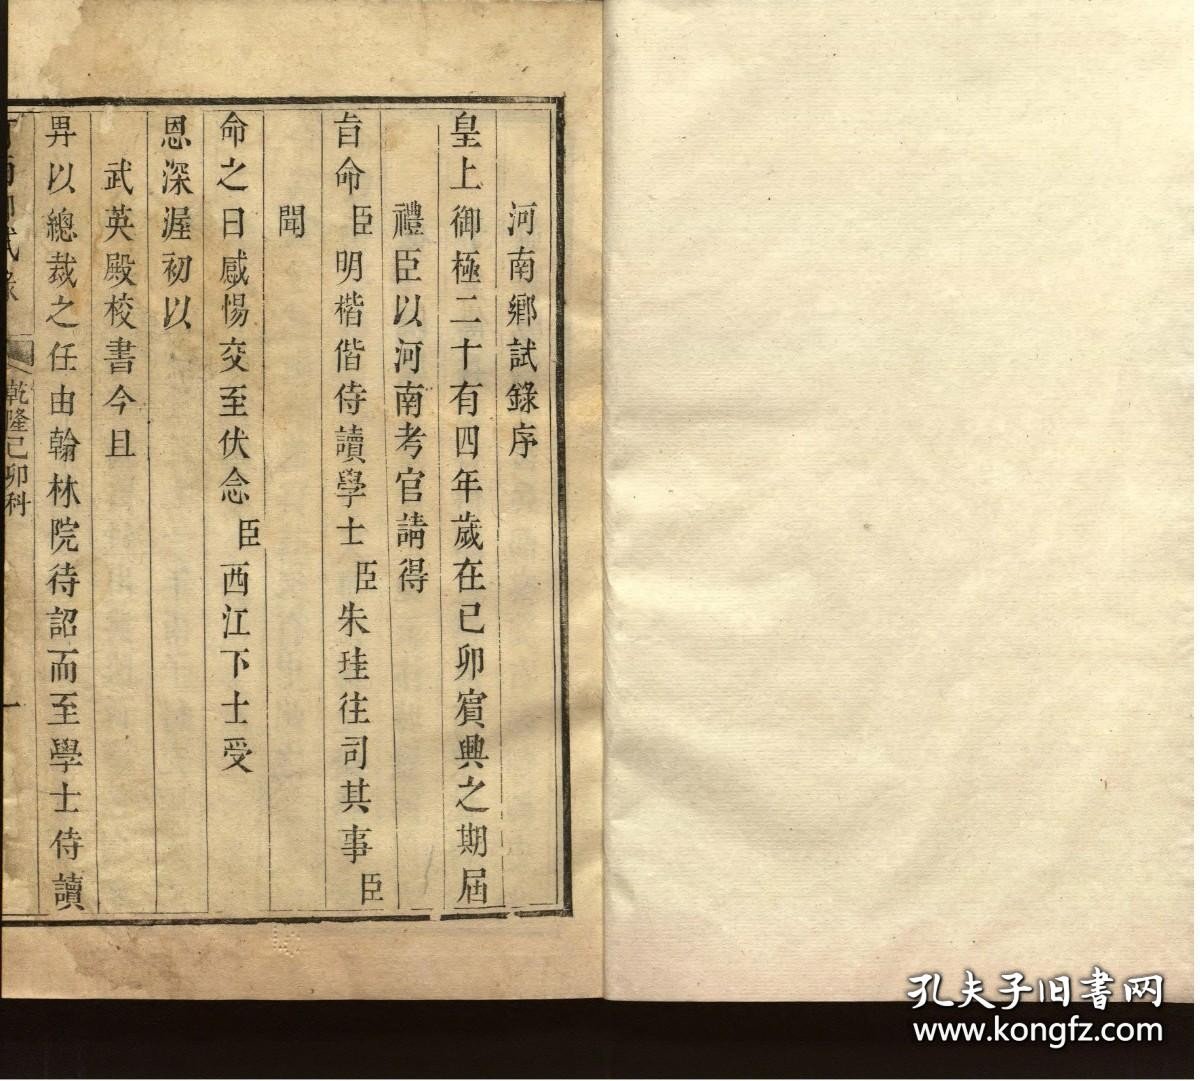 河南鄉試錄序
皇上御極二十有四年歲在己卯賓興之期屆
禮臣以河南考官請得
旨命臣明楷偕侍讀學士臣朱珪往司其事臣
聞
命之日感惕交至伏念臣西江下士受
恩深渥初以
武英殿校書今且
畀以總裁之任由翰林院待詔而至學士侍讀
乾隆己卯科
一
孔夫子旧書网
www.kongfz.com